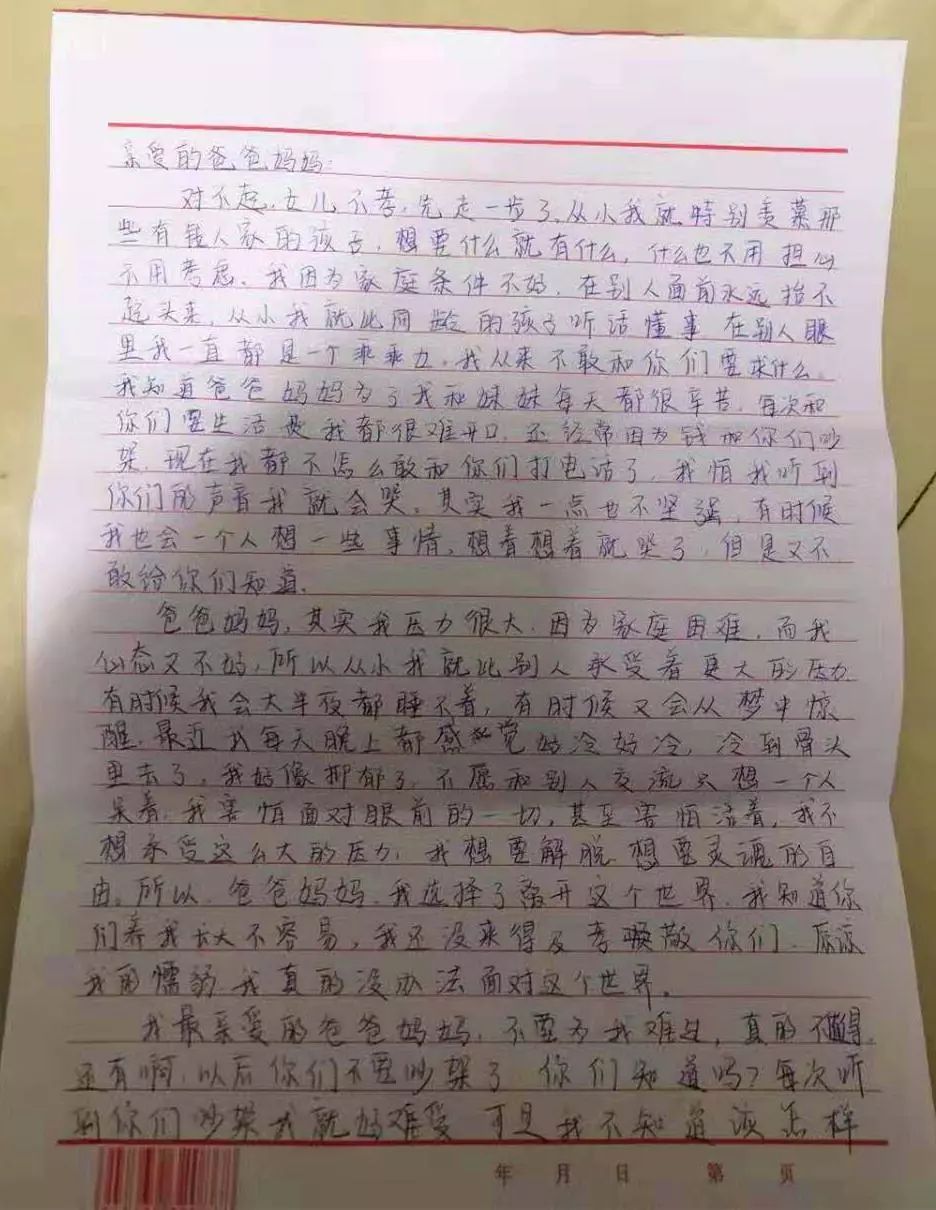 亲爱的爸爸妈妈:
对不起,女儿不孝,先走一步了,从小我就特别羡慕那
些有钱人家的孩子,想要什么就有什么,什么也不用担心
不用考虑。我因为家庭条件不好,在别人面前永远抬不
起头来,从小我就比同龄的孩子听话懂事在别人眼
里我一直都是一个乖乖女,我从来不敢和你们要求什么。
我知道爸爸妈妈为了我和妹妹每天都很辛苦,每次和
你们要生活费我都很难开口,还经常因为钱和你们吵
架,现在我都不怎么敢和你们打电话了,我怕我听到
你们的声音我就会哭。其实我一点也不坚强,有时候
我也会一个人想一些事情,想着想着就哭了,但是又不
敢给你们知道.
爸爸妈妈,其实我压力很大,因为家庭困难,而我
心态又不好,所以从小我就比别人承受着更大的压力
有时候我会大半夜都睡不着,有时候又会从梦中惊
醒,最近我每天晚上都感觉好冷好冷,冷到骨头
里去了,我好像抑郁了,不愿和别人交流只想一个人
呆着,我害怕面对眼前的一切,甚至害怕活着,我不
想承受这么大的压力,我想要解脱想要灵魂的自
由。所以,爸爸妈妈,我选择了离开这个世界,我知道你
们养我长大不容易,我还没来得及孝敬你们,原谅
我的懦弱我真的没办法面对这个世界。
我最亲爱的爸爸妈妈,不要为我难过,真的不值得,
还有啊,以后你们不要吵架了你们知道吗?每次听
到你们吵架我就好难受可是我不知道该怎样
年 月 日 第 页